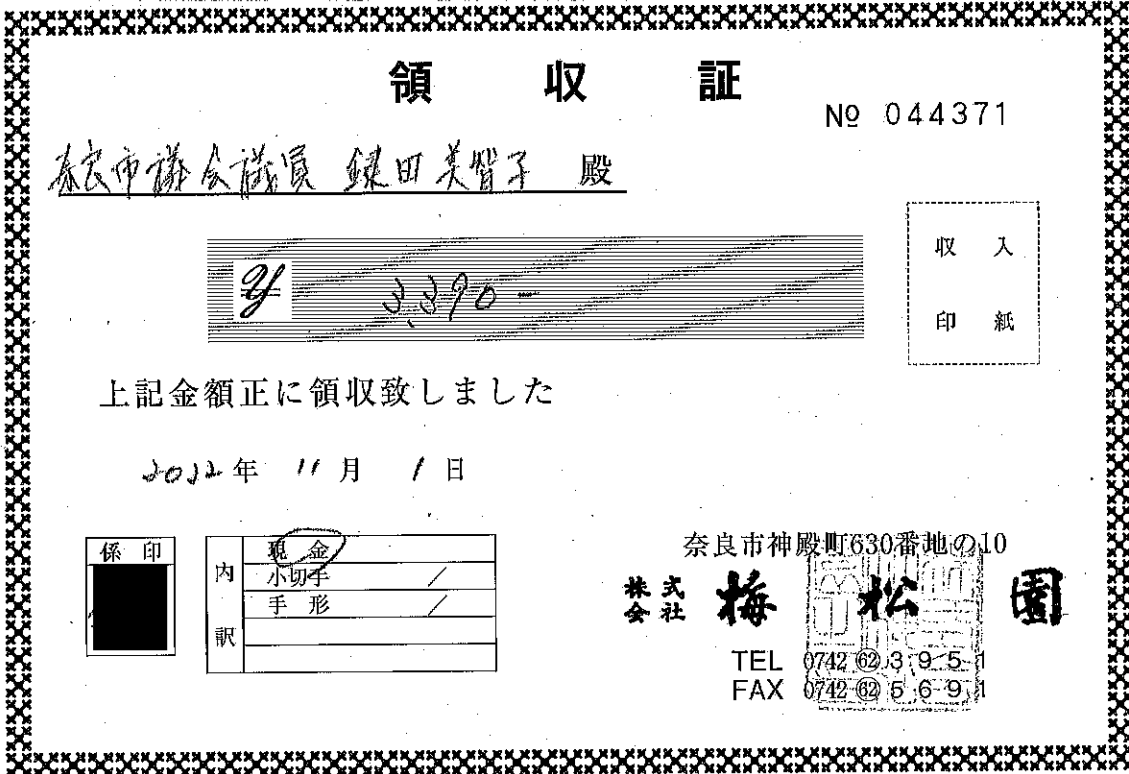 領収証
№ 044371
奈良市議会議員 鍵田美智子 殿
収入
印紙
¥ 3,390-
上記金額正に領収致しました
2022年 11月 1日
係印
内訳
現金
小切手 /
手形 /
奈良市神殿町630番地の10
株式会社 梅松園
TEL 0742 62 3951
FAX 0742 62 5691